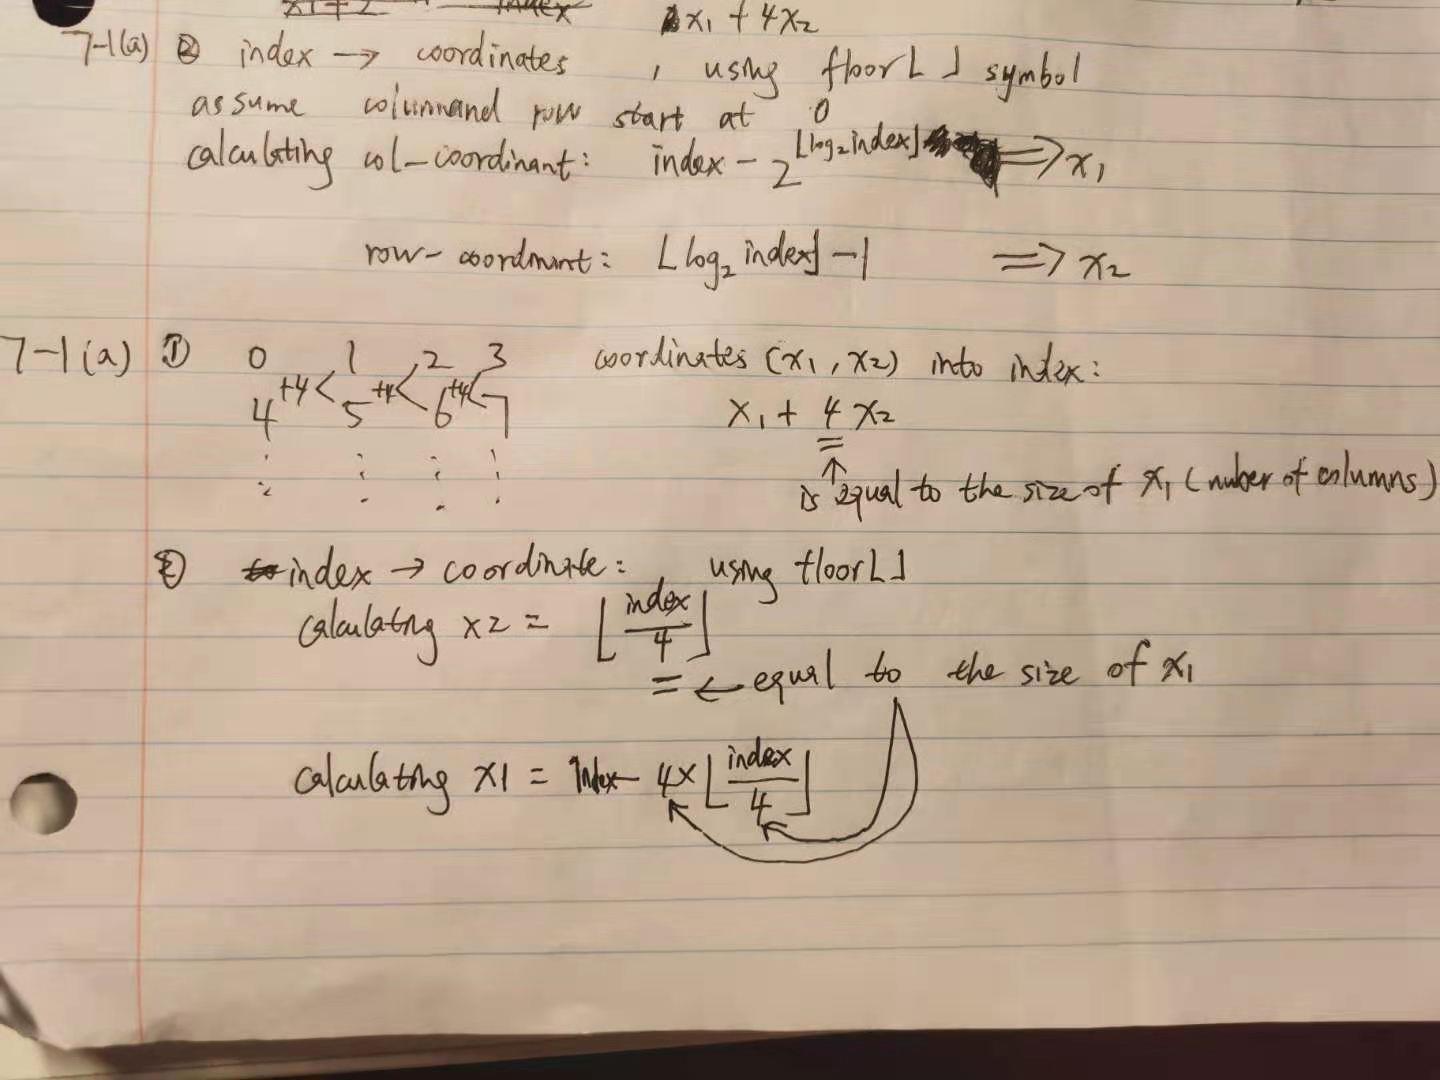 x₁ + 4x₂
7-1(a) ② index → coordinates , using floor⌊ ⌋ symbol
assume columnand row start at 0
calculating col-coordinant: index - 2^⌊log₂index⌋ ⟹ x₁
row-coordinant: ⌊log₂ index⌋ - 1 ⟹ x₂
7-1(a) ① 0 1 2 3 coordinates (x₁, x₂) into index:
+4< +4< +4<
4 5 6 7 x₁ + 4 x₂
is equal to the size of x₁ (number of columns)
② index → coordinate: using floor⌊⌋
calculating x2 = ⌊index/4⌋
= ← equal to the size of x₁
calculating x1 = index - 4×⌊index/4⌋